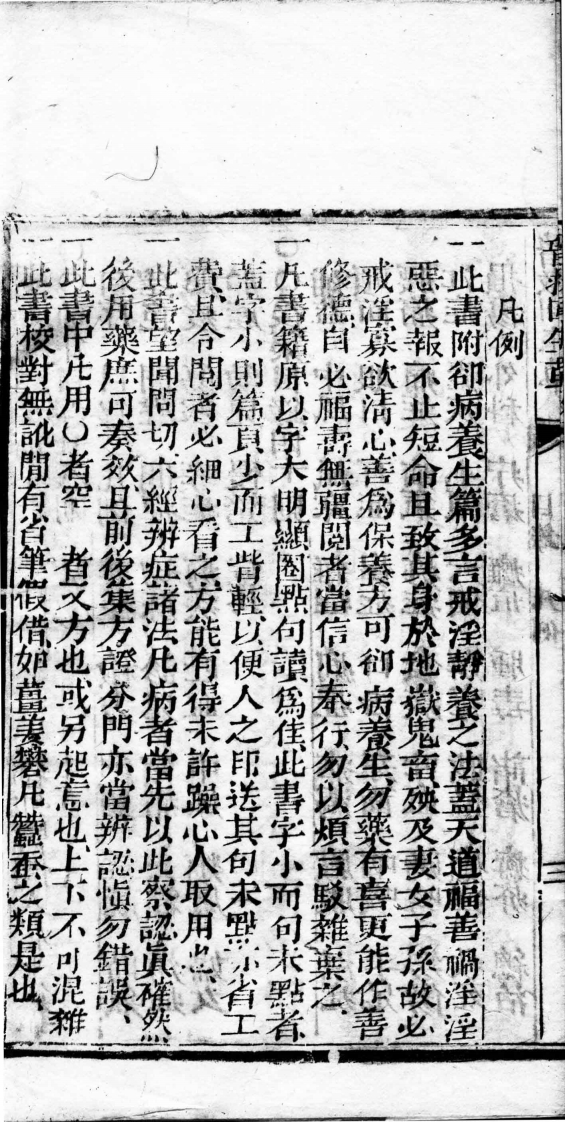 凡例
一此書附卻病養生篇多言戒淫靜養之法蓋天道福善禍淫淫
惡之報不止短命且致其身於地獄鬼畜殃及妻女子孫故必
戒淫寡欲清心善爲保養方可卻病養生勿藥有喜更能作善
修德自必福壽無疆閱者當信心奉行勿以煩言駁雜棄之
一凡書籍原以字大明顯圈點句讀爲佳此書字小而句未點者
蓋字小則篇頁少而工貲輕以便人之印送其句未點亦省工
費且令閱者必細心看之方能有得未許躁心人取用也
一此書望聞問切六經辨症諸法凡病者當先以此察認眞確然
後用藥庶可奏效且前後集方證分門亦當辨認愼勿錯誤
一此書中凡用〇者空　者又方也或另起意也上下不可混雜
一此書校對無訛間有省筆假借如薑姜礬凡蠶蚕之類是也
三